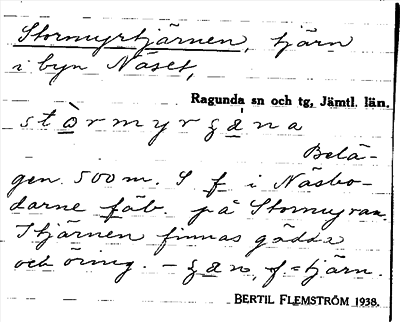 Stormyrtjärnen, tjärn
i byn Näset,
Ragunda sn och tg, Jämtl. län.
stòrmyrʒäna
Belä-
gen 500 m. S f i Näsbo-
darne fäb. på Stormyran.
I tjärnen finnas gädda
och öring. – ʒän, f. = tjärn.
BERTIL FLEMSTRÖM 1938.